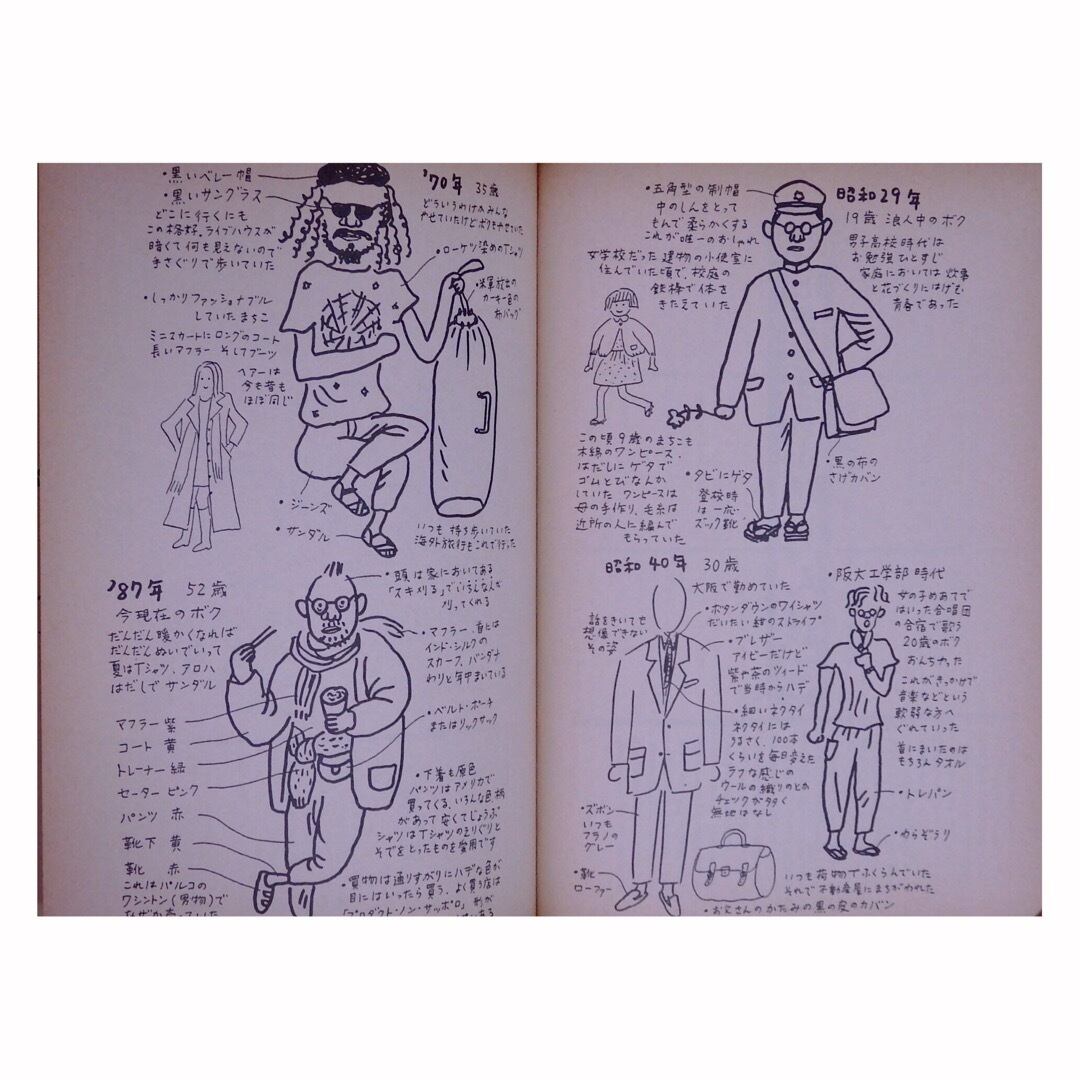 昭和29年
19歳 浪人中のボク
男子高校時代は
お勉強ひとすじ
家庭においては 炊事
と花づくりにはげむ
青春であった
・五角型の制帽
中のしんをとって
もんで柔らかくする
これが唯一のおしゃれ
女学校だった建物の小使室に
住んでいた頃で、校庭の
鉄棒で体を
きたえていた
この頃9歳のまちこも
木綿のワンピース、
はだしにゲタで
ゴムとびなんか
していた ワンピースは
母の手作り、毛糸は
近所の人に編んで
もらっていた
・タビにゲタ
登校時
は一応
ズック靴
・黒の布の
さげカバン
昭和40年 30歳
大阪で勤めていた
話をきいても
想像できない
その姿
・ボタンダウンのワイシャツ
だいたい紺のストライプ
・ブレザー
アイビーだけど
紫や茶のツィード
で当時からハデ
・細いネクタイ
ネクタイには
うるさく、100本
くらいを毎日変えた
ラフな感じの
ウールの織りのとか
チェックが多く
無地はなし
・ズボン
いつも
フラノの
グレー
・靴
ローファー
いつも荷物でふくらんでいた
それで不動産屋にまちがわれた
・お父さんのかたみの黒の皮のカバン
・阪大工学部時代
女の子めあてで
はいった合唱団
の合宿で歌う
20歳のボク
おんちやった
これがきっかけで
音楽などという
軟弱な方へ
ぐれていった
首にまいたのは
もちろんタオル
・トレパン
・わらぞうり
'70年 35歳
どういうわけかみんな
かせていたけどボクもやせていた
・黒いベレー帽
・黒いサングラス
どこに行くにも
この格好。ライブハウスが
暗くて何も見えないので
手さぐりで歩いていた
・ローケツ染めのTシャツ
・米軍放出の
カーキ色の
布バッグ
・しっかりファッショナブル
していたまちこ
ミニスカートにロングのコート
長いマフラー そしてブーツ
ヘアーは
今も昔も
ほぼ同じ
・ジーンズ
・サンダル
いつも持ち歩いていた
海外旅行もこれで行った
'87年 52歳
今現在のボク
だんだん暖かくなれば
だんだんぬいでいって
夏はTシャツ、アロハ
はだしでサンダル
・頭は家においてある
「スキメリる」でいろんな人が
刈ってくれる
・マフラー、首には
インド・シルクの
スカーフ、バンダナ
わりと年中まいている
・ベルト・ポーチ
またはリュックサック
マフラー 紫
コート 黄
トレーナー 緑
セーター ピンク
パンツ 赤
靴下 黄
靴 赤
これはパルコの
ワシントン(男物)で
なぜか売っていた
・下着も原色
パンツはアメリカで
買ってくる、いろんな色柄
があって安くてじょうぶ
シャツはTシャツのえりぐりと
そでをとったものを愛用です
・買物は通りすがりにハデな色が
目にはいったら買う、よく買う店は
「プロダクト・ノン・サッポロ」 形が